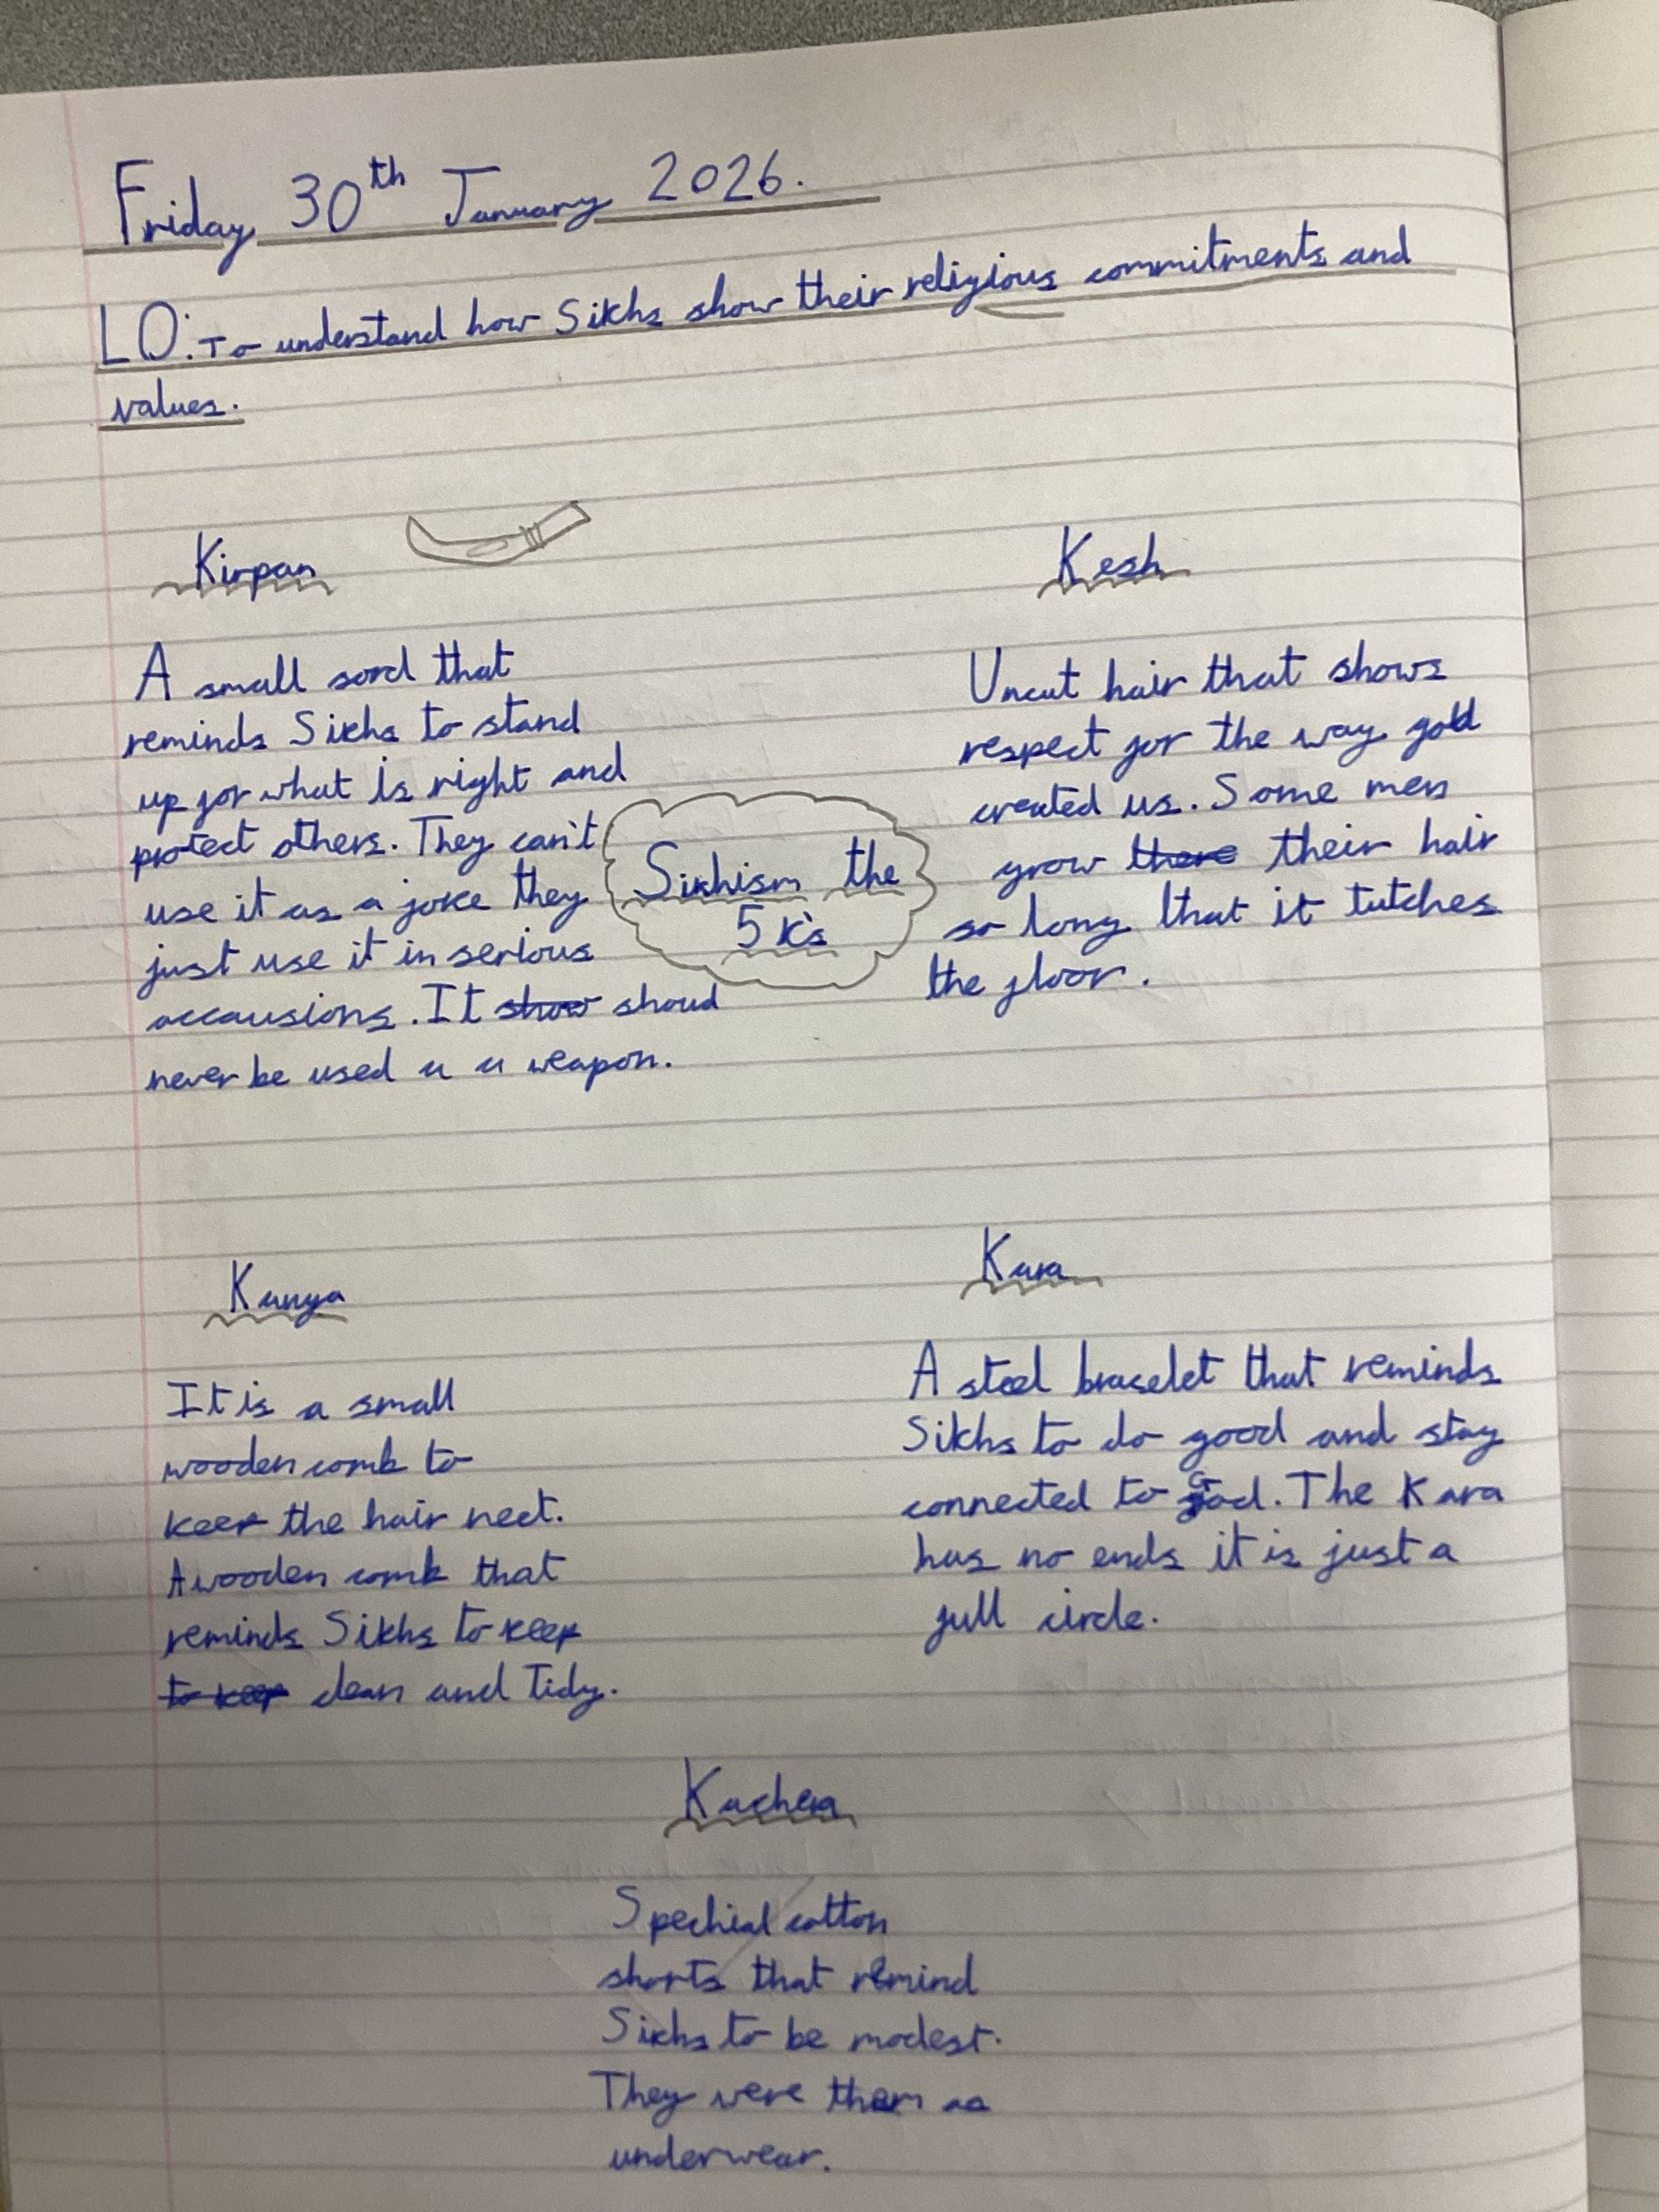 Friday 30th January 2026.
LO: To understand how Sikhs show their religious commitments and
values.
Kirpan
A small sord that
reminds Sikhs to stand
up for what is right and
protect others. They can't
use it as a joke they
just use it in serious
accausions. It show shoud
never be used a a weapon.
Kesh
Uncut hair that shows
respect for the way god
created us. Some men
grow there their hair
so long that it tutches
the floor.
Sikhism the
5 K's
Kanga
It is a small
wooden comb to
keep the hair neet.
A wooden comb that
reminds Sikhs to keep
to keep clean and Tidy.
Kara
A steel braselet that reminds
Sikhs to do good and stay
connected to God. The Kara
has no ends it is just a
full circle.
Kachera
Spechial cotton
shorts that remind
Sikhs to be modest.
They were them as
underwear.